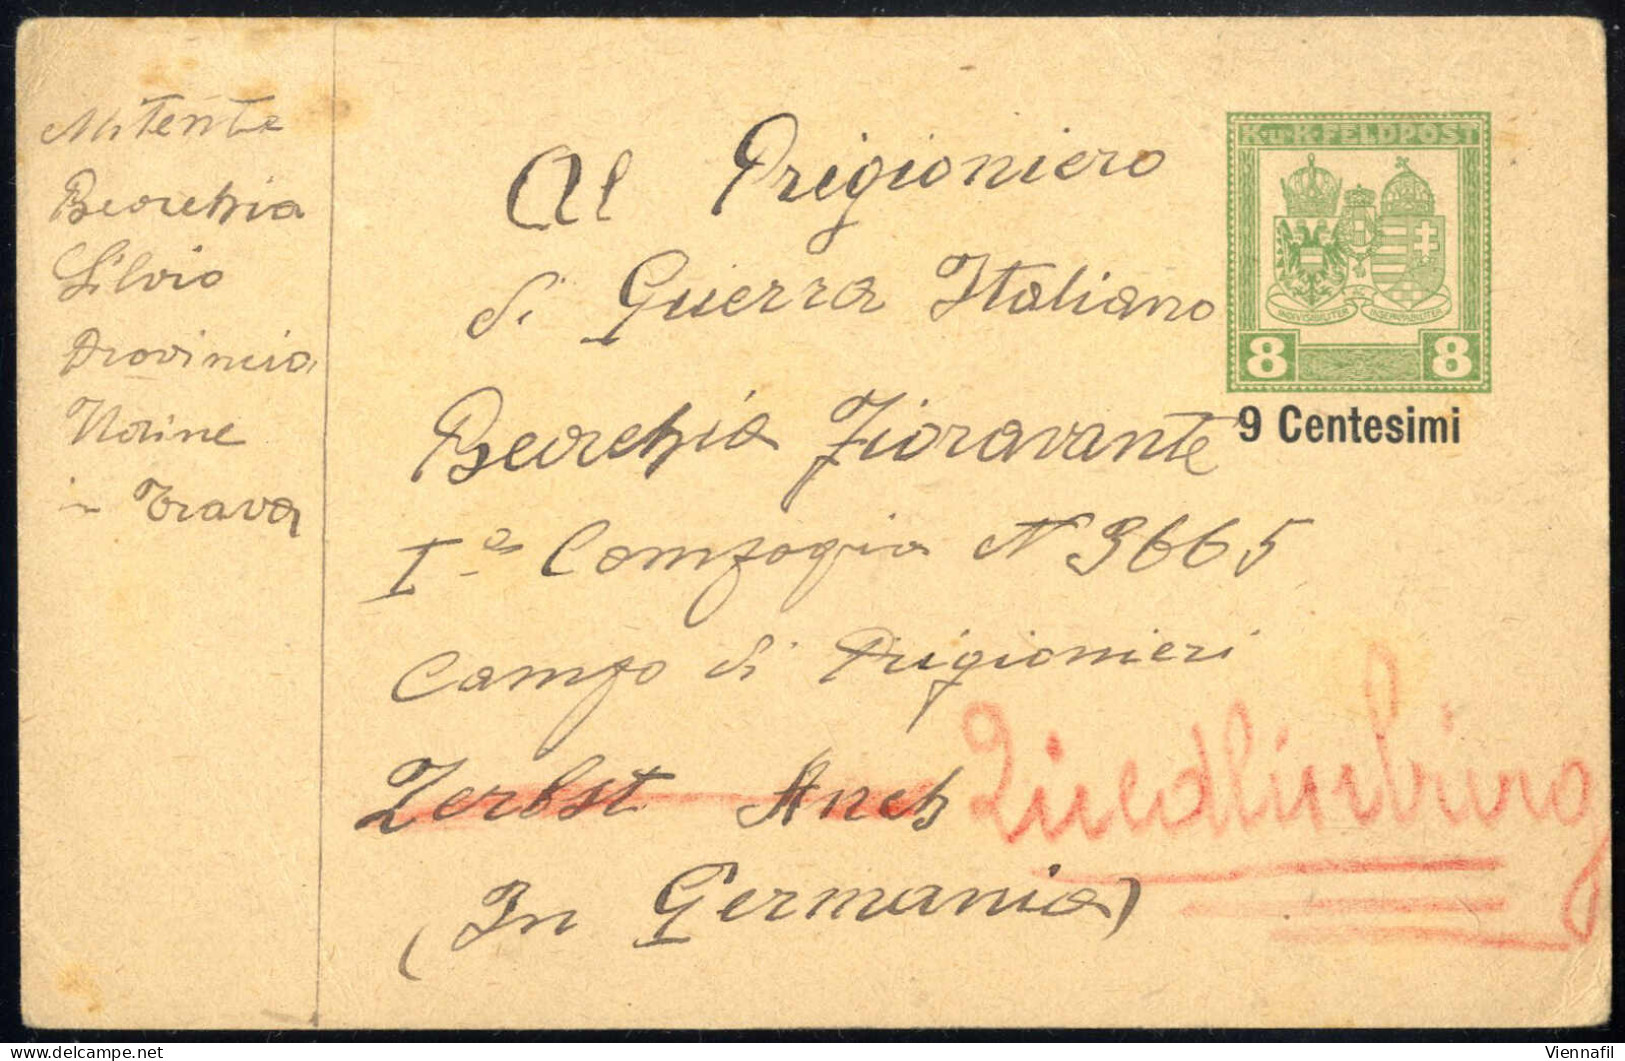 Mitente
Beorchia
Silvio
Provincia
Udine
in Trava
Al Prigioniero
di Guerra Italiano
Beorchia Fioravante
Iª Compagia N 3665
Campo di Prigionieri
Zerbst Anch Quedlinburg
(In Germania)
K.u.K. FELDPOST
INDIVISIBILITER INSEPARABILITER
8 8
9 Centesimi
delcampe.net
Viennafil